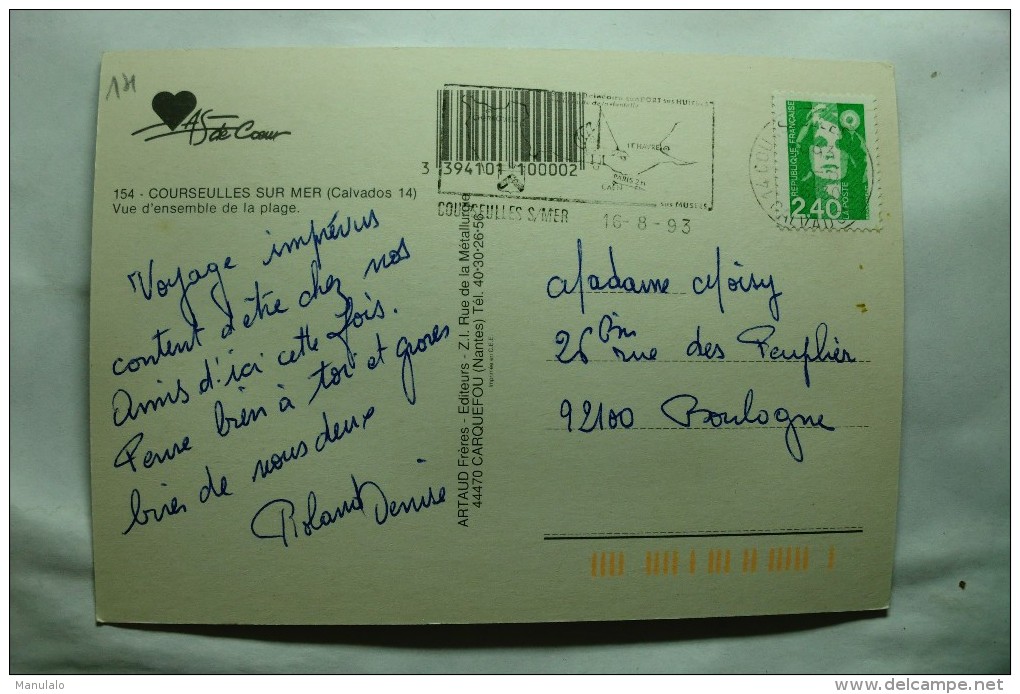 121
AS de Cœur
154 - COURSEULLES SUR MER (Calvados 14)
Vue d'ensemble de la plage.
Voyage imprévus
content d'être chez nos
Amis d'ici cette fois.
Pense bien à toi et grosses
bises de nous deux
Roland Denise
ARTAUD Frères - Editeurs - Z.I. Rue de la Métallurgie
44470 CARQUEFOU (Nantes) Tél. 40-30-26-56
Imprimé en C.E.E.
3 394101 100002
SON PORT SES HUITRES
LE HAVRE
PARIS 2H
CAEN
SES MUSÉES
COURSEULLES S/MER
16-8-93
RÉPUBLIQUE FRANÇAISE
2,40
LA POSTE
Madame Moisy
26 bis rue des Peuplier
92100 Boulogne
Manulalo
www.delcampe.net